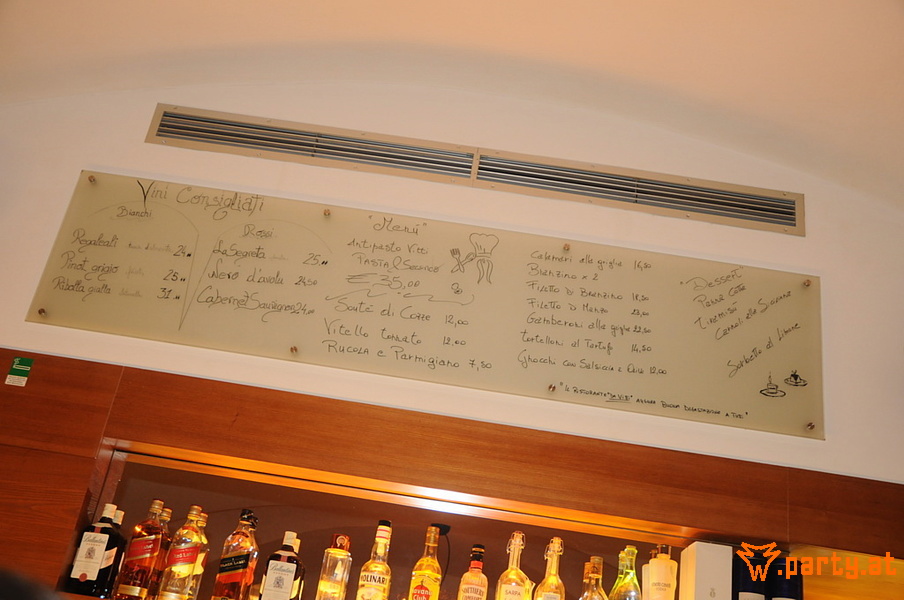 Vini Consigliati
Bianchi
Regaleali 24,00
Pinot grigio 25,00
Ribolla gialla 31,00
Rossi
La Segreta 25,00
Nero d'avola 24,50
Cabernet Sauvignon 24,00
"Menú"
Antipasto Vitt
PASTA & SECONDO
€ 35,00
Souté di Cozze 12,00
Vitello tonnato 12,00
RUCOLA e PARMIGIANO 7,50
Calamari alla griglia 16,50
BRANZINO x 2
FILETTO DI BRANZINO 18,50
FILETTO DI MANZO 23,00
Gamberoni alla griglia 22,50
tortelloni al Tartufo 14,50
Gnocchi con Salsiccia e 12,00
"Dessert"
Panna Cotta
Tiramisú
Cannoli alla Siciliana
Sorbetto di Limone
"IL RISTORANTE "DA VITT" AUGURA BUONA DEGUSTAZIONE A TUTTI"
Ballantine's
MOLINARI
Havana
Club
w.party.at